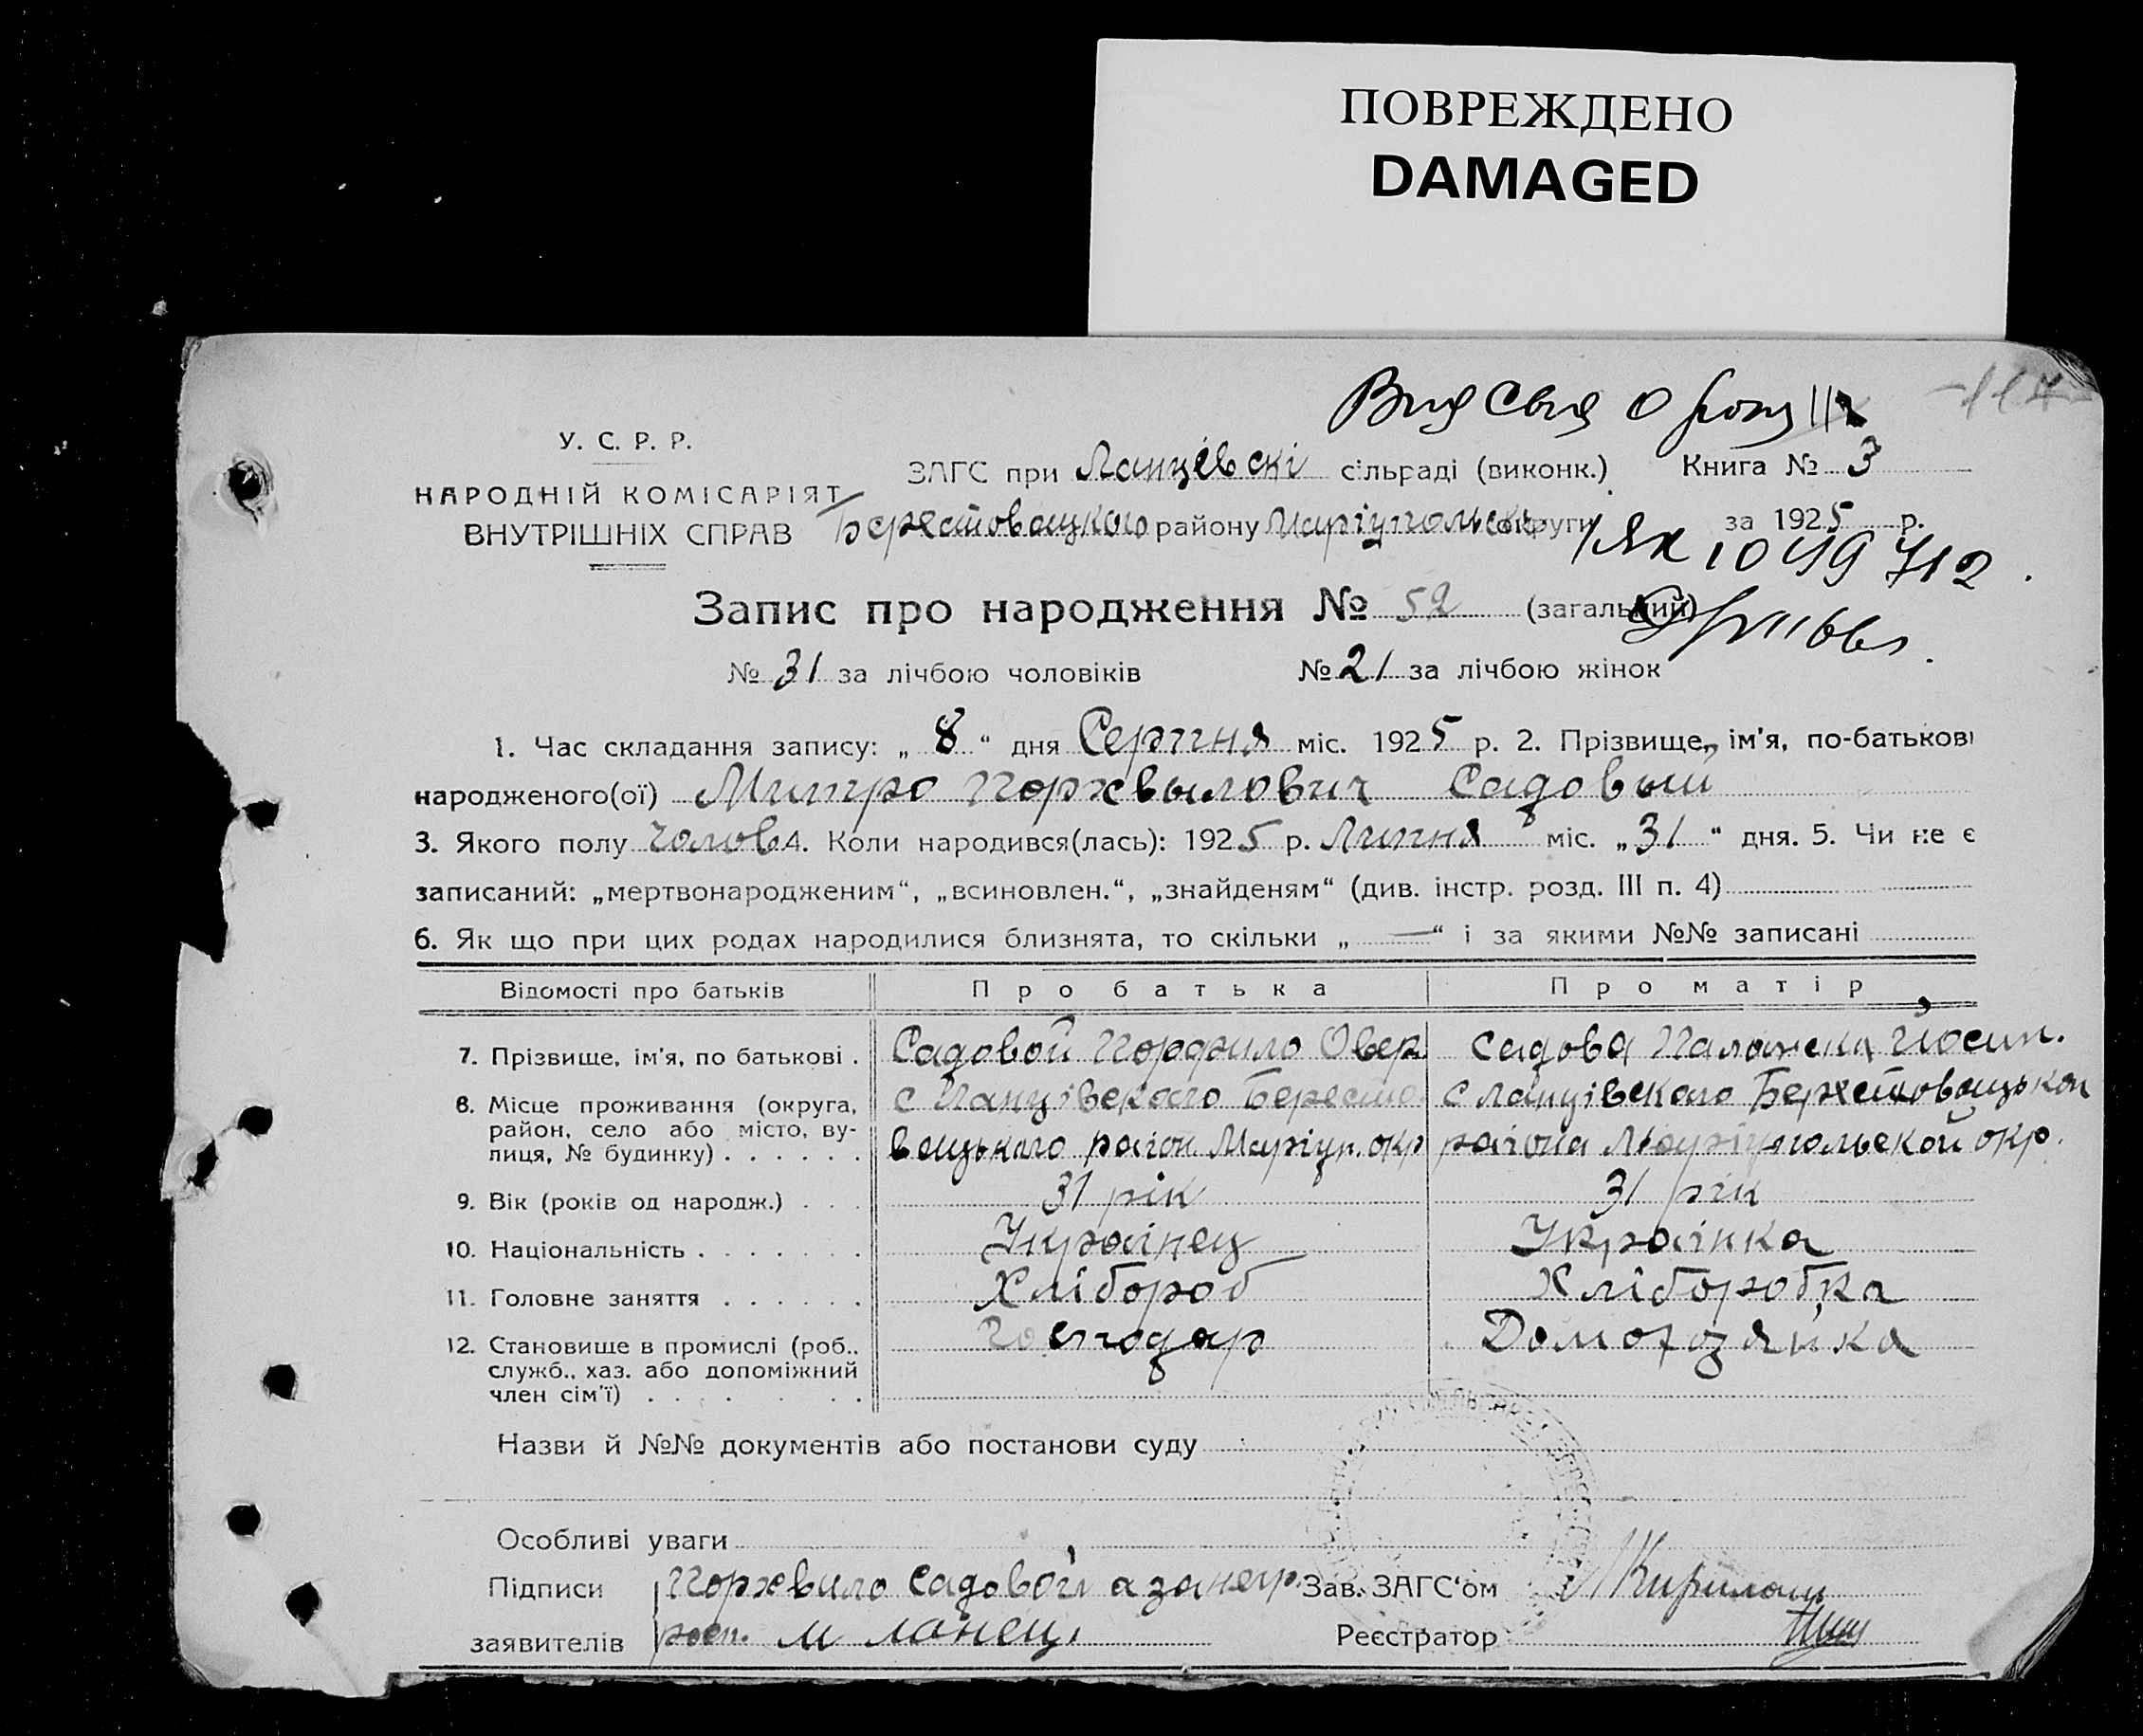 ПОВРЕЖДЕНО
DAMAGED
117
У. С. Р. Р.
НАРОДНІЙ КОМІСАРІЯТ
ВНУТРІШНІХ СПРАВ
ЗАГС при Ланцівскі сільраді (виконк.) Книга № 3
Берестовацкого району Маріупольск. округи за 1925 р.
Запис про народження № 52 (загальний)
№ 31 за лічбою чоловіків № 21 за лічбою жінок
1. Час складання запису: „ 8 “ дня Серпня міс. 1925 р. 2. Прізвище, ім'я, по-батькові
народженого(ої) Митро Порхвылович Садовый
3. Якого полу чолов 4. Коли народився(лась): 1925 р. Липня міс. „31“ дня. 5. Чи не є
записаний: „мертвонародженим“, „всиновлен.“, „знайденям“ (див. інстр. розд. III п. 4)
6. Як що при цих родах народилися близнята, то скільки „ — “ і за якими №№ записані
Відомості про батьків Про батька Про матір
7. Прізвище, ім'я, по батькові . Садовой Порфило Овер. Садова Палажка Йосип.
8. Місце проживання (округа, район, село або місто, вулиця, № будинку) . . . . . .
с Ланцівского Бересто
вацького район. Маріуп. окр
с Ланцівского Берестовацькой
района Маріупольской окр.
9. Вік (років од народж.) . . . 31 рік 31 рік
10. Національність . . . . . . . Українец Українка
11. Головне заняття . . . . . . Хлібороб Хліборобка
12. Становище в промислі (роб., служб., хаз. або допоміжний член сім'ї) . . . . . . Господар Домохозяйка
Назви й №№ документів або постанови суду
Особливі уваги
Підписи заявителів
Порхвило Садовой а за негр.
росп. М Ланец.
Зав. ЗАГС'ом
Реєстратор